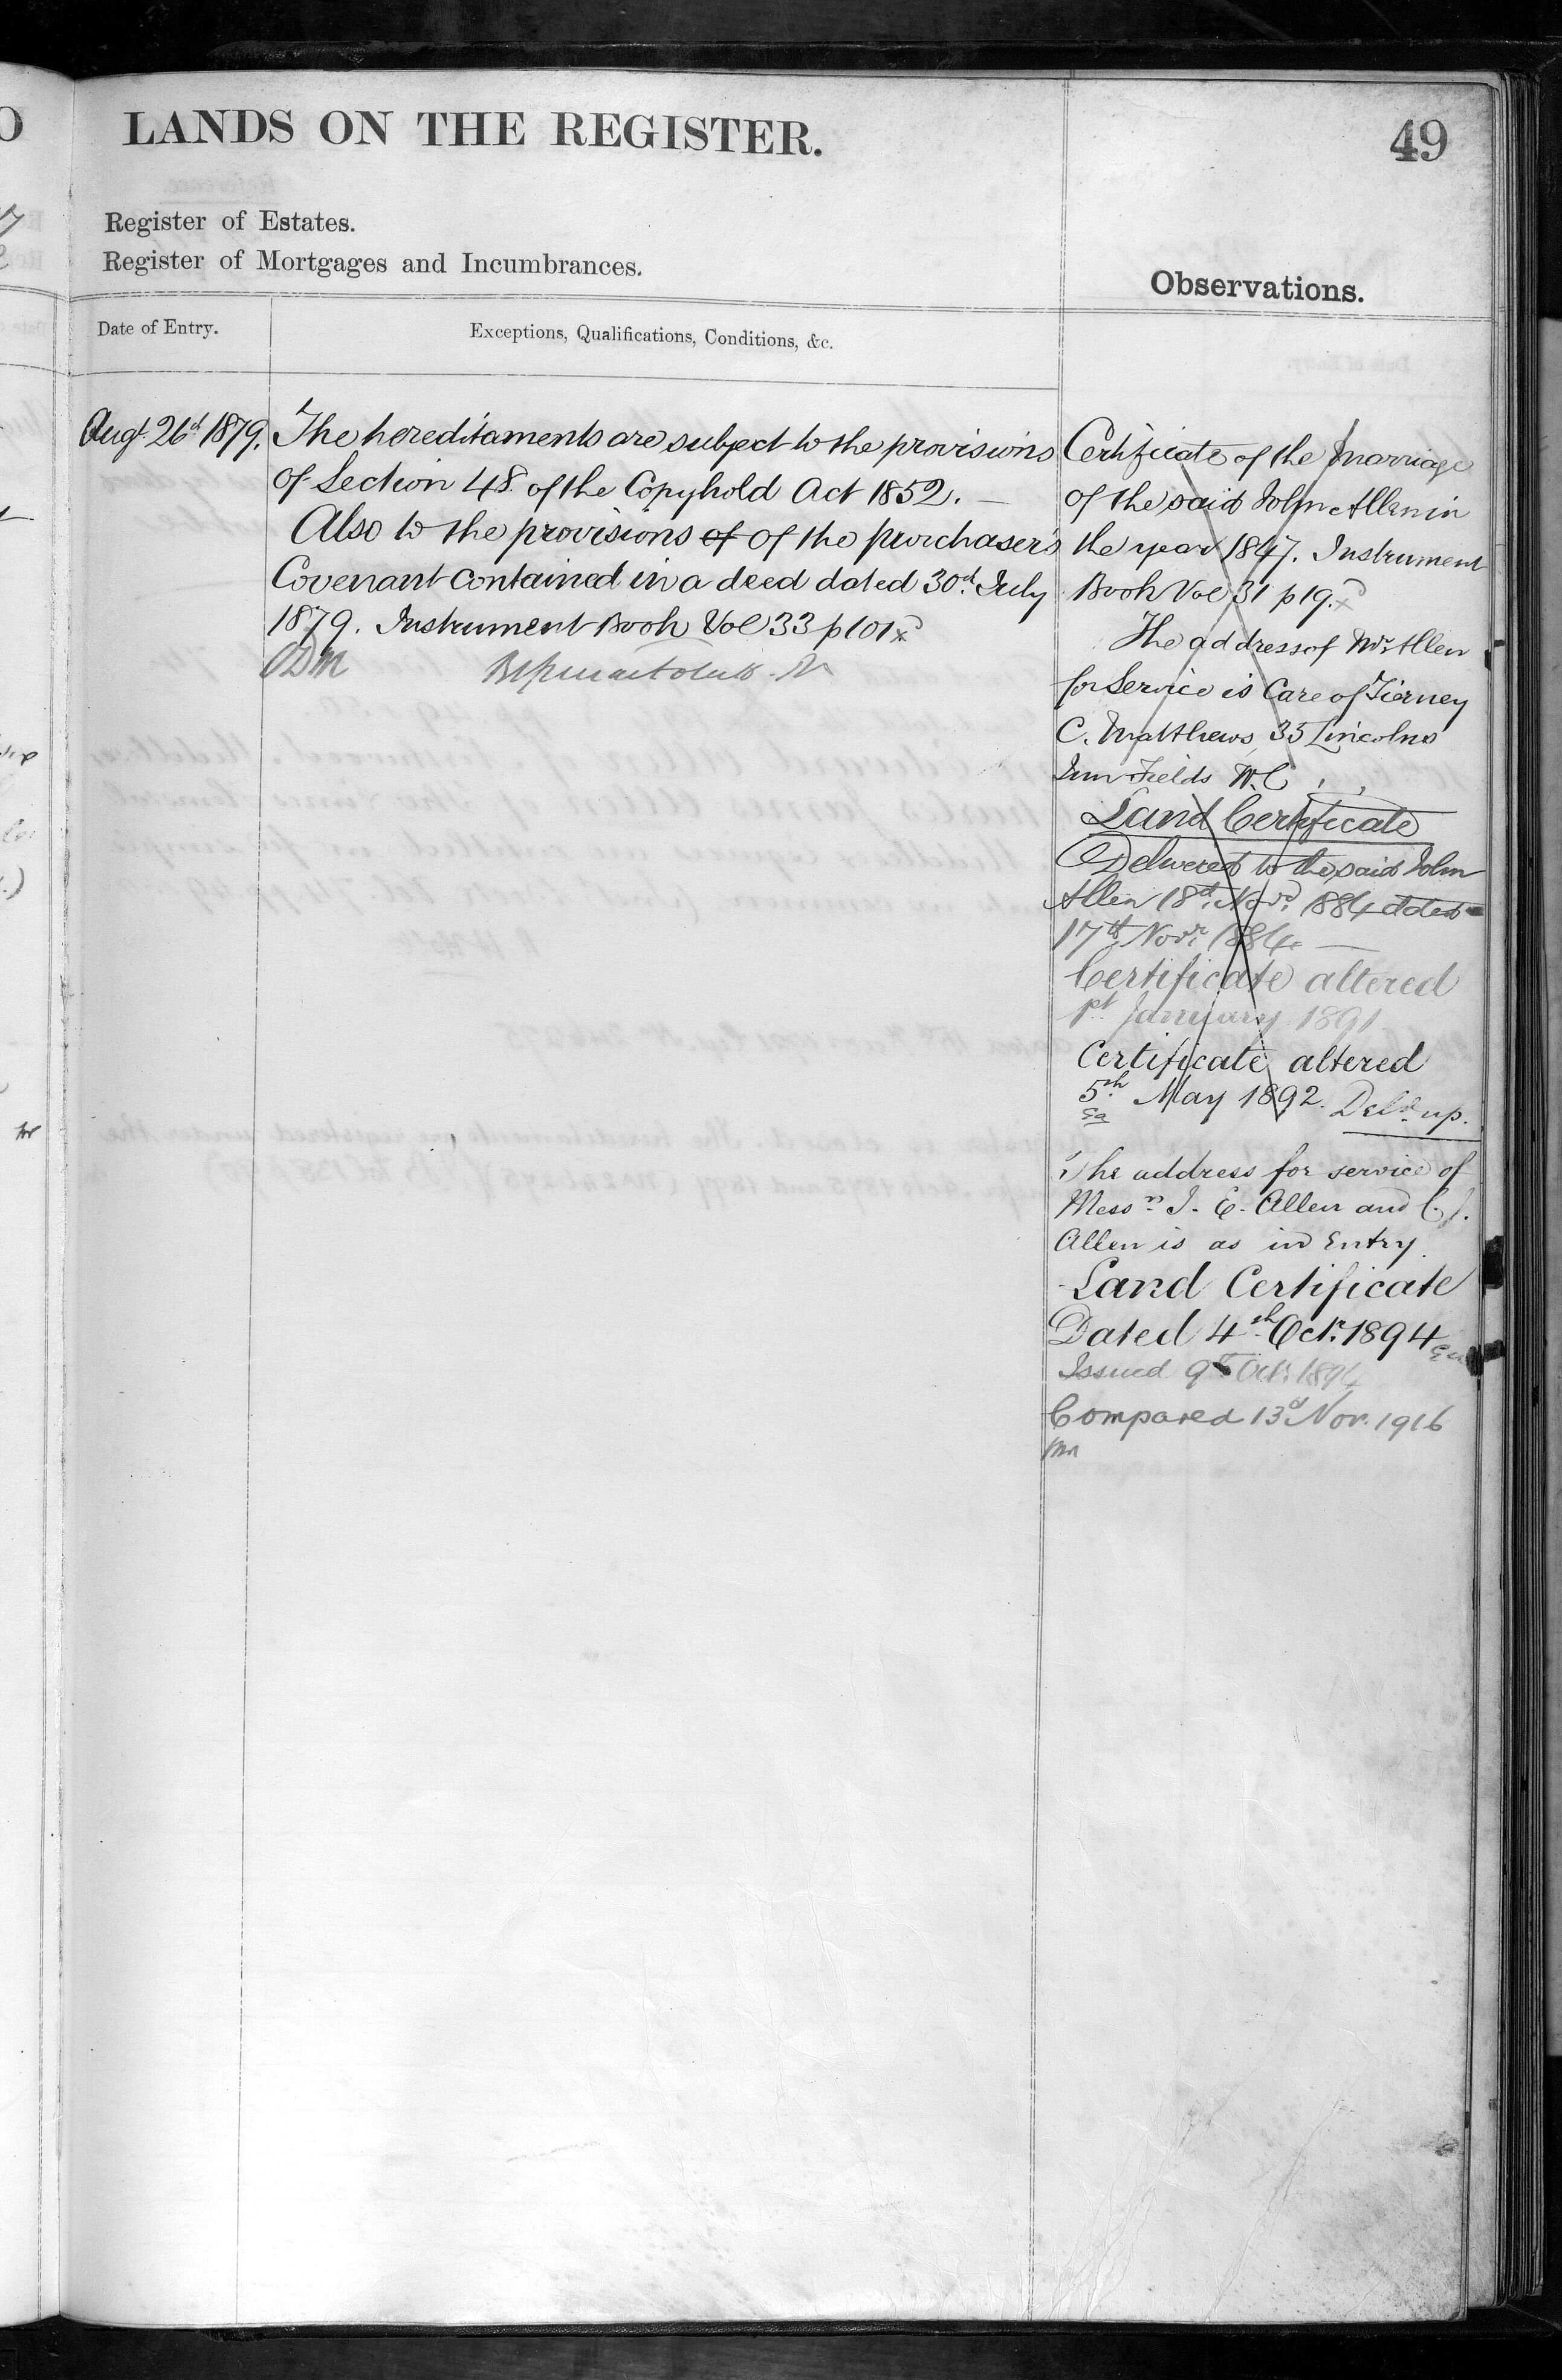 LANDS ON THE REGISTER.
49
Register of Estates.
Register of Mortgages and Incumbrances.
Observations.
Date of Entry.
Exceptions, Qualifications, Conditions, &c.
Augt 26th 1879.
The hereditaments are subject to the provisions
of Section 48 of the Copyhold Act 1852. —
Also to the provisions of of the purchaser's
Covenant contained in a deed dated 30th July
1879. Instrument Book Vol 33 p 101
Certificate of the Marriage
of the said John Allen in
the year 1847. Instrument
Book Vol 31 p 19.
The address of Mr Allen
for Service is Care of Tierney
C. Matthews 35 Lincolns
Inn Fields W.C
Land Certificate
Delivered to the said John
Allen 18th Novr 1884 dated
17th Novr 1884. —
Certificate altered
1st January 1891
Certificate altered
5th May 1892. Deld up.
The address for service of
Messrs J. E. Allen and C. J.
Allen is as in Entry.
Land Certificate
Dated 4th Octr. 1894
Issued 9th Octr 1894
Compared 13d Nov. 1916